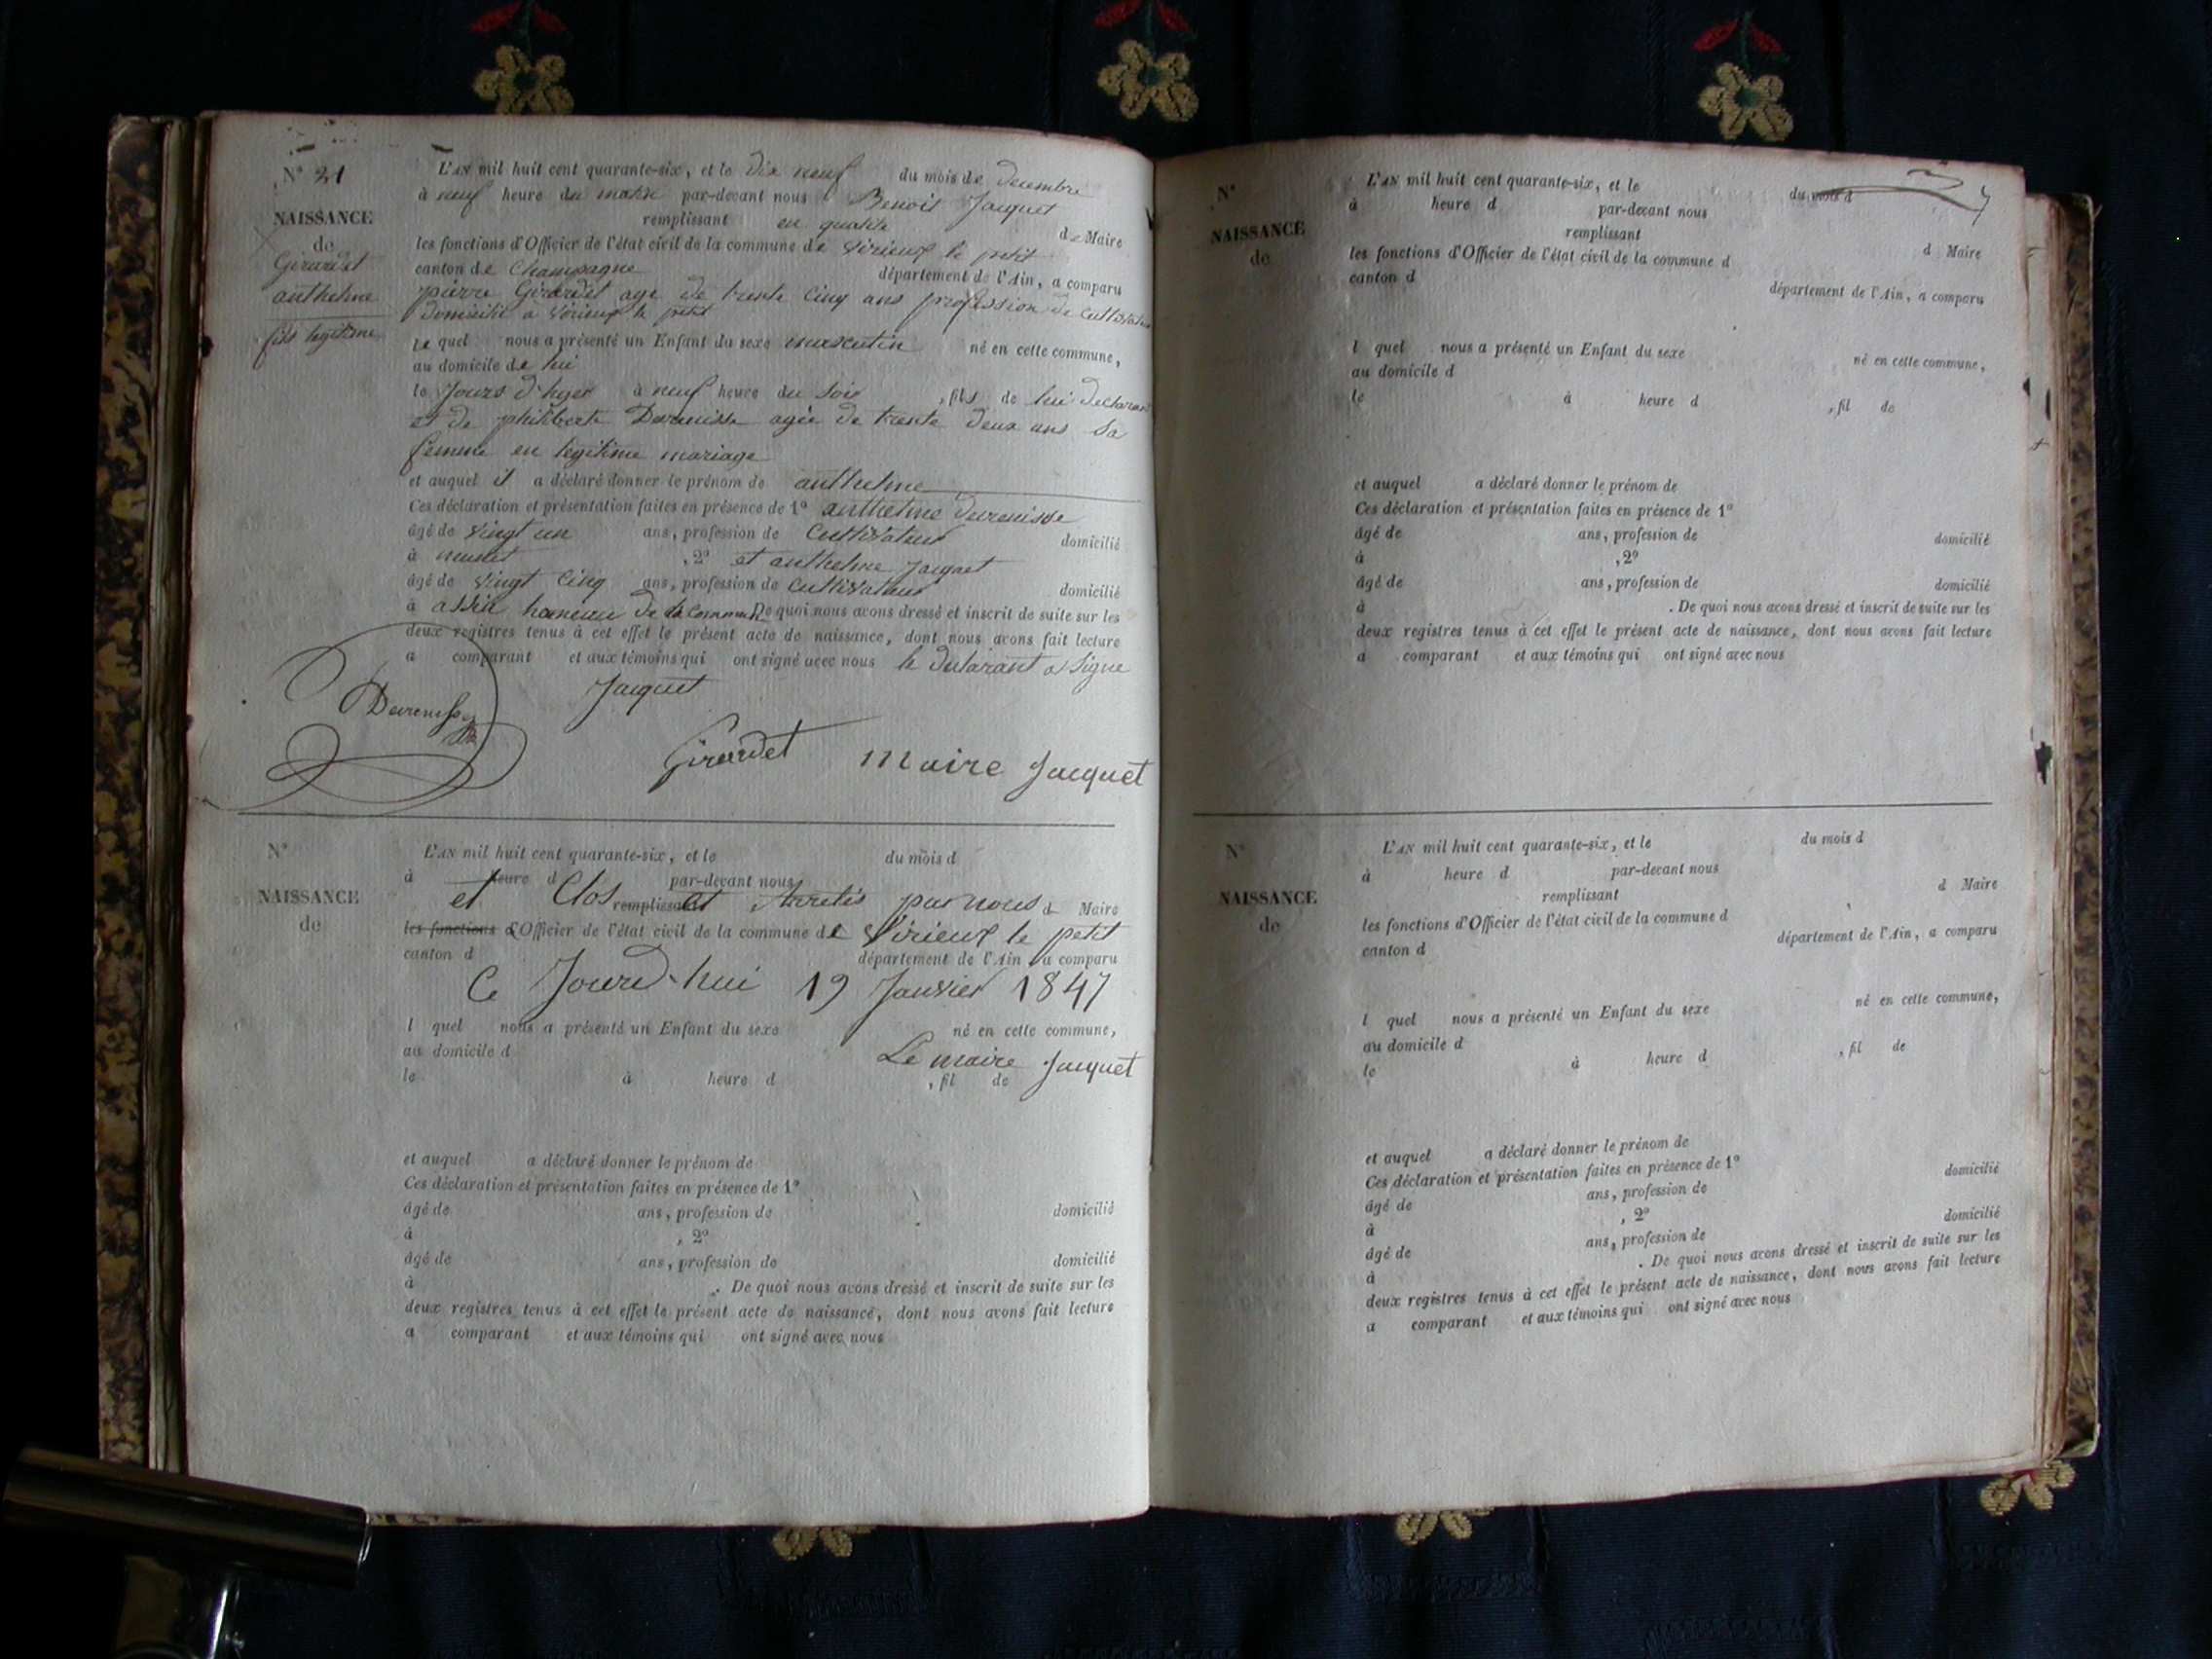 N° 21
NAISSANCE
de
Girardet
anthelme
fils legitime
L'AN mil huit cent quarante-six, et le dix neuf du mois de decembre
à neuf heure du matin par-devant nous Benoit Jacquet
remplissant en qualité de Maire
les fonctions d'Officier de l'état civil de la commune de Virieux le petit
canton de Champagne département de l'Ain, a comparu
pierre Girardet age de trente cinq ans profession de Cultivateur
domicilié a Virieux le petit
Le quel nous a présenté un Enfant du sexe masculin né en cette commune,
au domicile de lui
le Jours d'hyer à neuf heure du soir , fils de lui declarant
et de philiberte agée de trente deux ans sa
femme en legitime mariage
et auquel il a déclaré donner le prénom de anthelme
Ces déclaration et présentation faites en présence de 1° anthelme
âgé de vingt un ans, profession de Cultivateur domicilié
à , 2° et anthelme Jacquet
âgé de vingt cinq ans, profession de Cultivateur domicilié
à assin hameau de la Commune De quoi nous avons dressé et inscrit de suite sur les
deux registres tenus à cet effet le présent acte de naissance, dont nous avons fait lecture
a comparant et aux témoins qui ont signé avec nous le declarant a signé
Jacquet
Girardet maire Jacquet
N°
NAISSANCE
de
L'AN mil huit cent quarante-six, et le du mois d
à heure d par-devant nous
et Clos remplissant et Arretés par nous d Maire
les fonctions d'Officier de l'état civil de la commune de Virieux le petit
canton d département de l'Ain, a comparu
Ce Jourd'hui 19 Janvier 1847
l quel nous a présenté un Enfant du sexe né en cette commune,
au domicile d Le maire Jacquet
le à heure d , fil de
et auquel a déclaré donner le prénom de
Ces déclaration et présentation faites en présence de 1°
âgé de ans, profession de domicilié
à , 2°
âgé de ans, profession de domicilié
à . De quoi nous avons dressé et inscrit de suite sur les
deux registres tenus à cet effet le présent acte de naissance, dont nous avons fait lecture
a comparant et aux témoins qui ont signé avec nous
N°
NAISSANCE
de
L'AN mil huit cent quarante-six, et le du mois d
à heure d par-devant nous
remplissant d Maire
les fonctions d'Officier de l'état civil de la commune d
canton d département de l'Ain, a comparu
l quel nous a présenté un Enfant du sexe né en cette commune,
au domicile d
le à heure d , fil de
et auquel a déclaré donner le prénom de
Ces déclaration et présentation faites en présence de 1°
âgé de ans, profession de domicilié
à , 2°
âgé de ans, profession de domicilié
à . De quoi nous avons dressé et inscrit de suite sur les
deux registres tenus à cet effet le présent acte de naissance, dont nous avons fait lecture
a comparant et aux témoins qui ont signé avec nous
N°
NAISSANCE
de
L'AN mil huit cent quarante-six, et le du mois d
à heure d par-devant nous
remplissant d Maire
les fonctions d'Officier de l'état civil de la commune d
canton d département de l'Ain, a comparu
l quel nous a présenté un Enfant du sexe né en cette commune,
au domicile d
le à heure d , fil de
et auquel a déclaré donner le prénom de
Ces déclaration et présentation faites en présence de 1°
âgé de ans, profession de domicilié
à , 2°
âgé de ans, profession de domicilié
à . De quoi nous avons dressé et inscrit de suite sur les
deux registres tenus à cet effet le présent acte de naissance, dont nous avons fait lecture
a comparant et aux témoins qui ont signé avec nous